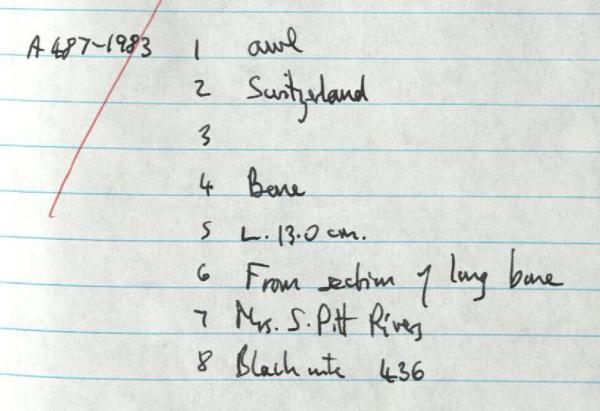 A 487-1983 1 awl
2 Switzerland
3
4 Bone
5 L. 13.0 cm.
6 From section of long bone
7 Mrs. S. Pitt Rivers
8 Black ink 436